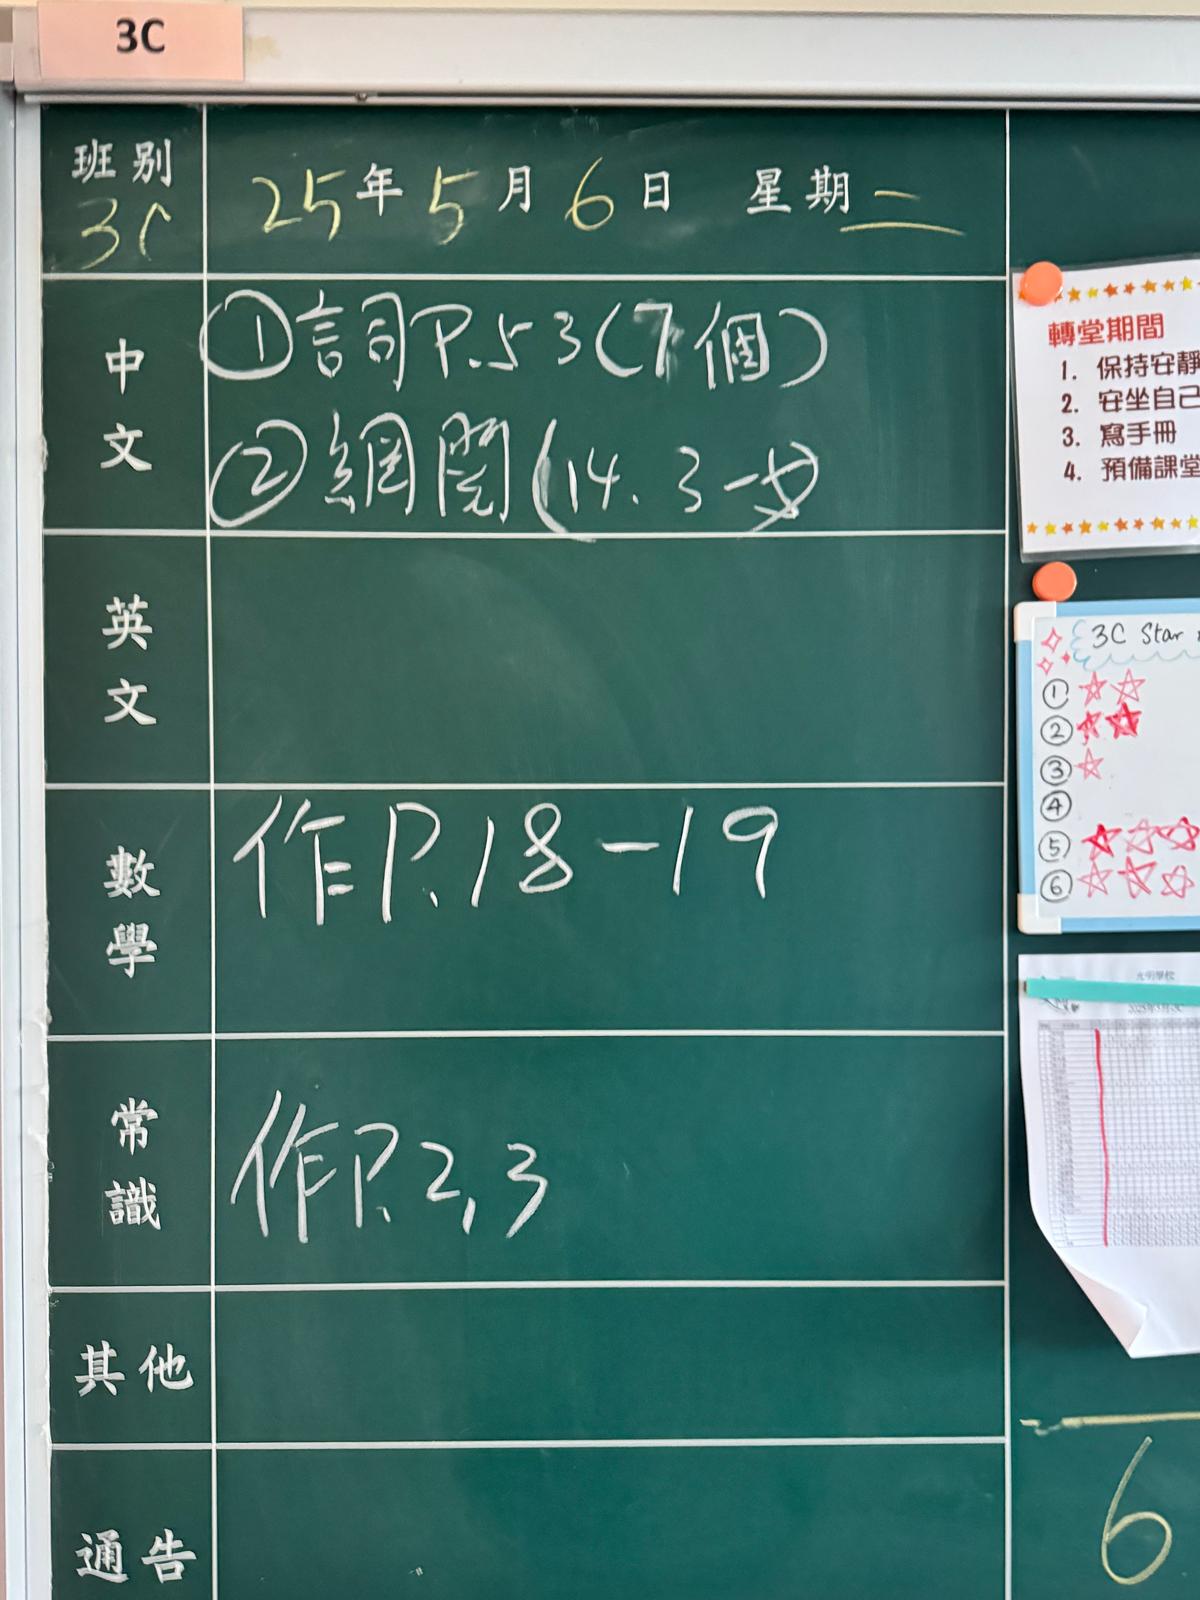 3C
班別
3C
25年5月6日 星期二
中文
①詞P.53(7個)
②網閱(14.3
英文
數學
作P.18-19
常識
作P.2,3
其他
通告
轉堂期間
1. 保持安靜
2. 安坐自己
3. 寫手冊
4. 預備課堂
3C Star
①
②
③
④
⑤
⑥
6